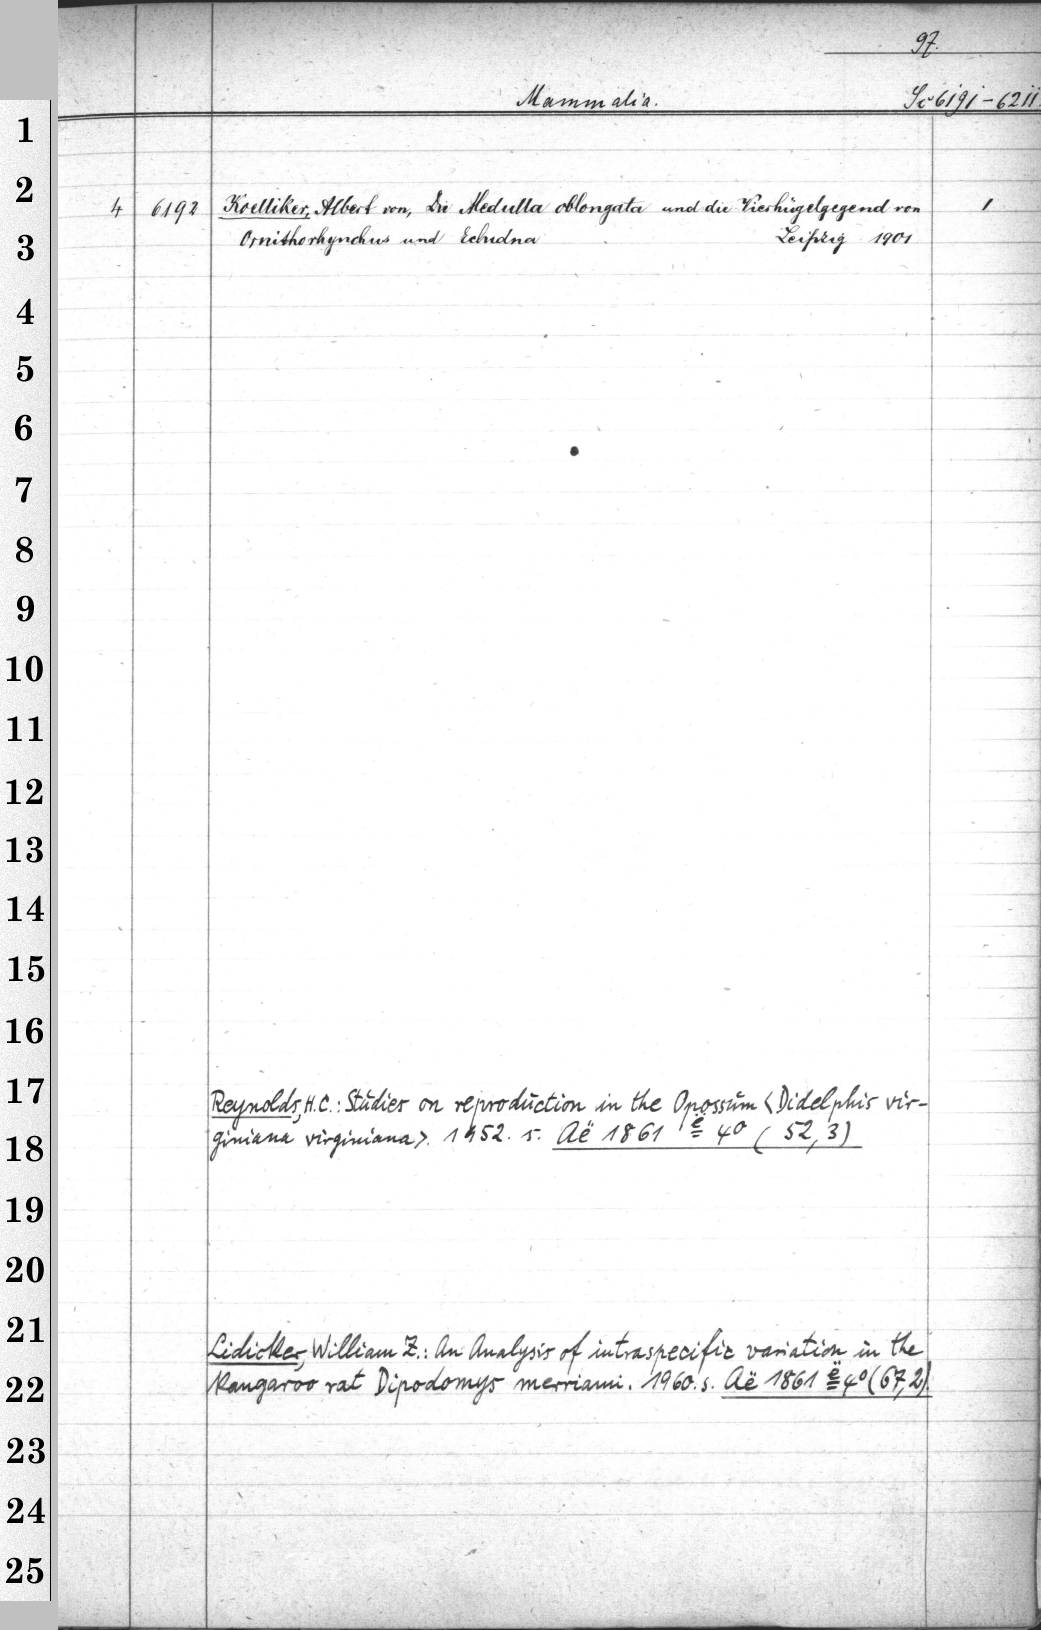 97.
Mammalia.
Sc 6191-6211.
1
2
4 6192 Koelliker, Albert von, Die Medulla oblongata und die Vierhügelgegend von 1
3
Ornithorhynchus und Echidna Leipzig 1901
4
5
6
7
8
9
10
11
12
13
14
15
16
17
Reynolds, H.C.: Studies on reproduction in the Opossum <Didelphis vir-
18
giniana virginiana>. 1952. s. Aë 1861 ë 4° (52,3)
19
20
21
Lidicker, William Z.: An Analysis of intraspecific variation in the
22
Kangaroo rat Dipodomys merriami. 1960. s. Aë 1861 ë 4° (67,2).
23
24
25